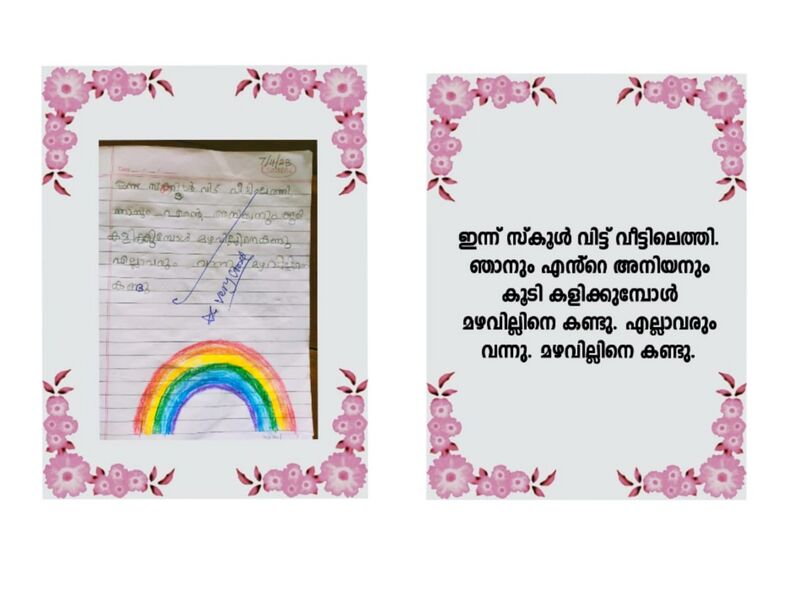 7/11/23
ഇന്ന് സ്കൂൾ വിട്ട് വീട്ടിലെത്തി
ഞാനും എൻ്റെ അനിയനും കൂടി
കളിക്കുമ്പോൾ മഴവില്ലിനെ കണ്ടു
എല്ലാവരും വന്നു മഴവില്ലിനെ
കണ്ടു
Very Good
ഇന്ന് സ്കൂൾ വിട്ട് വീട്ടിലെത്തി.
ഞാനും എൻ്റെ അനിയനും
കൂടി കളിക്കുമ്പോൾ
മഴവില്ലിനെ കണ്ടു. എല്ലാവരും
വന്നു. മഴവില്ലിനെ കണ്ടു.